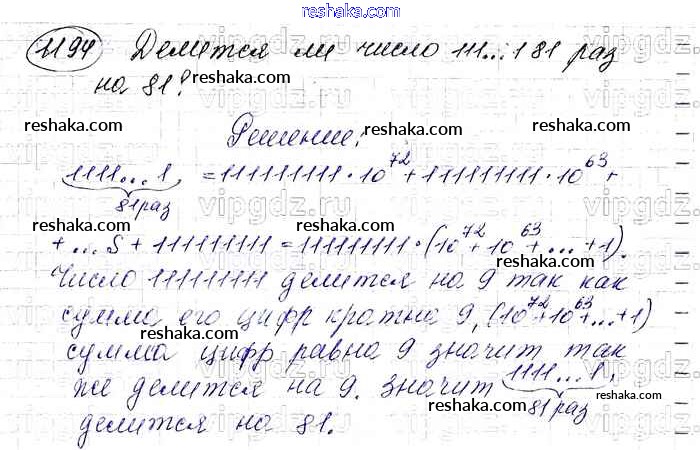 reshaka.com
1194 Делится ли число 111...1 81 раз
на 81?
reshaka.com
reshaka.com reshaka.com reshaka.com
Решение:
1111...1 = 111111111·10^72 + 111111111·10^63 +
81 раз
reshaka.com reshaka.com reshaka.com
+ ...S + 111111111 = 111111111·(10^72 + 10^63 + ... + 1).
Число 111111111 делится на 9 так как
reshaka.com reshaka.com reshaka.com
сумма его цифр кратна 9, (10^72+10^63+...+1)
reshaka.com reshaka.com reshaka.com
сумма цифр равна 9 значит так
же делится на 9. значит 1111...1,
81 раз
reshaka.com reshaka.com reshaka.com
делится на 81.